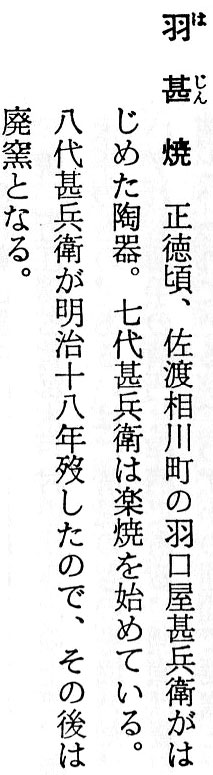 羽甚焼 正徳頃、佐渡相川町の羽口屋甚兵衛がは
じめた陶器。七代甚兵衛は楽焼を始めている。
八代甚兵衛が明治十八年歿したので、その後は
廃窯となる。